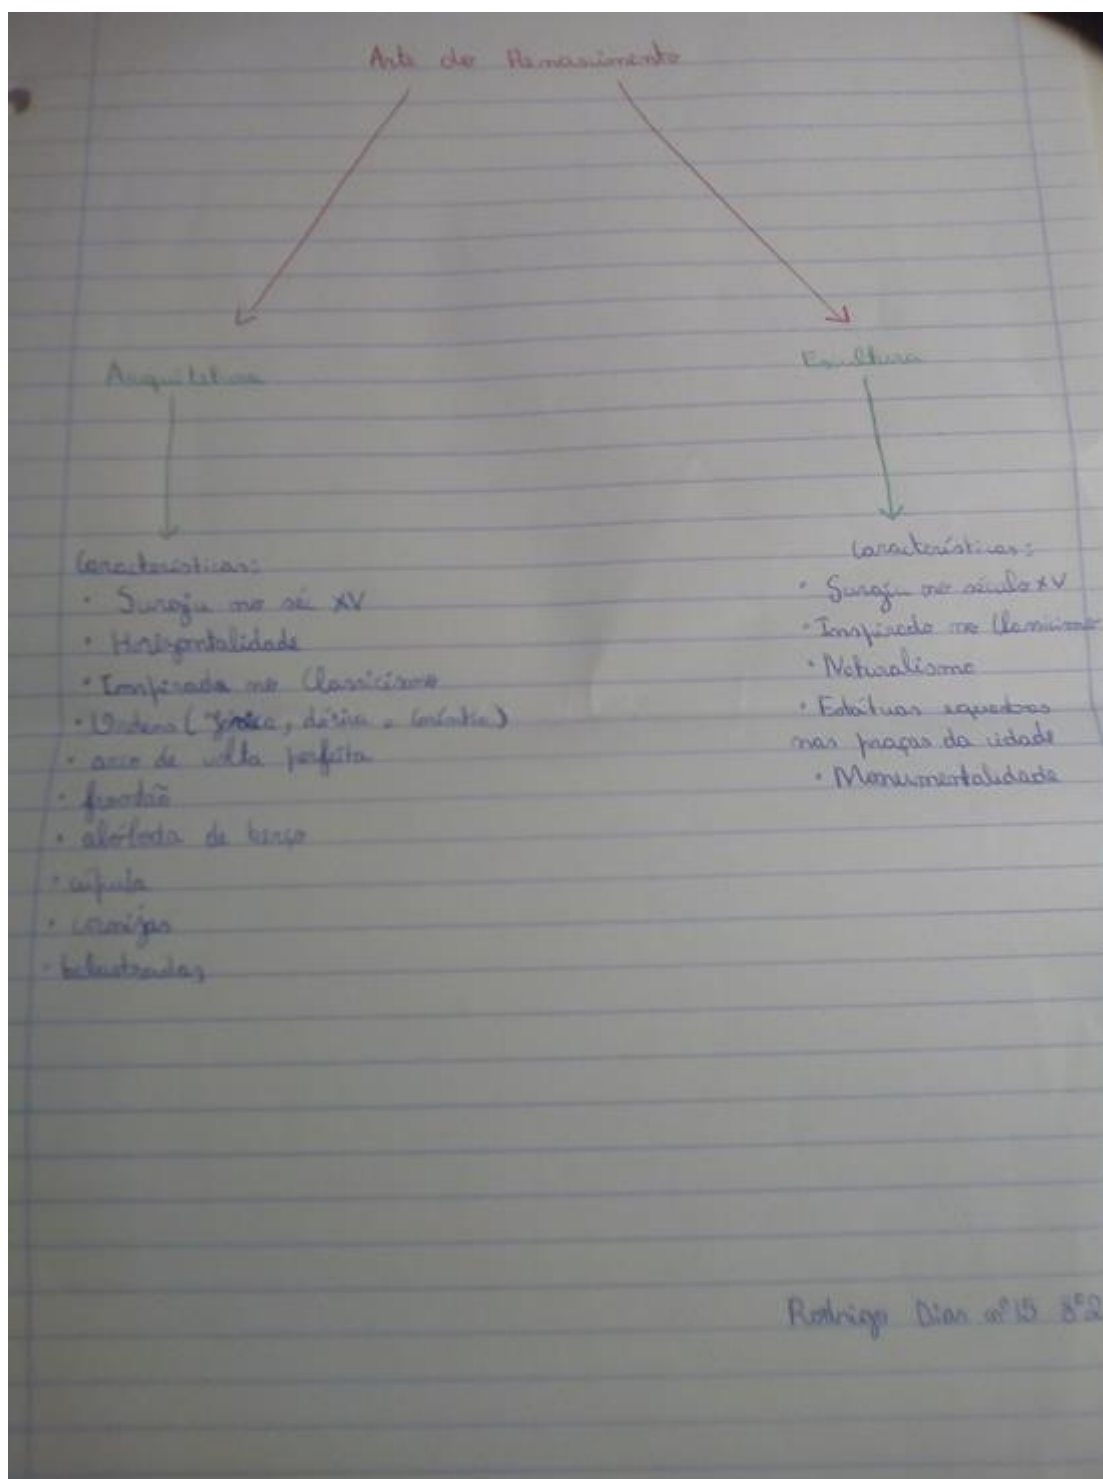 Arte do Renascimento
Arquitetura
Características:
• Surgiu no séc XV
• Horizontalidade
• Inspirada no Classicismo
• Ordens (Jónica, dórica e coríntia)
• arco de volta perfeita
• frontão
• abóboda de berço
• cúpula
• cornijas
• balaustradas
Escultura
Características:
• Surgiu no século XV
• Inspirado no Classicismo
• Naturalismo
• Estátuas equestres
nas praças da cidade
• Monumentalidade
Rodrigo Dias nº15 8º2